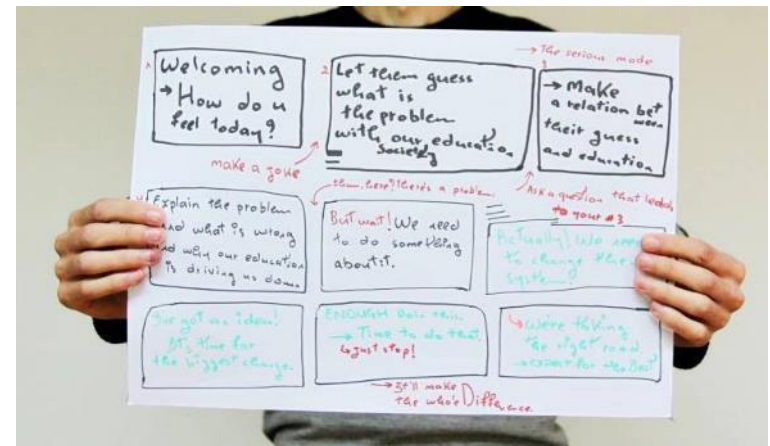 → The serious mode
1
Welcoming
→ How do u
feel today?
2
Let them guess
what is
the problem
with our education
Society
3
→ Make
a relation bet
ween
their guess
and education
make a joke
then, here? There's a problem
Ask a question that leads
to your #3
Explain the problem
and what is wrong
and why our education
is driving us down
But wait! We need
to do something
about it.
Actually! We need
to change the
system!
I've got an idea!
It's time for
the biggest change
ENOUGH Doin this
→ Time to do that.
↳ just stop!
↳ We're taking
the right road
→ expect for the Best
→ It'll make
the whole Difference.